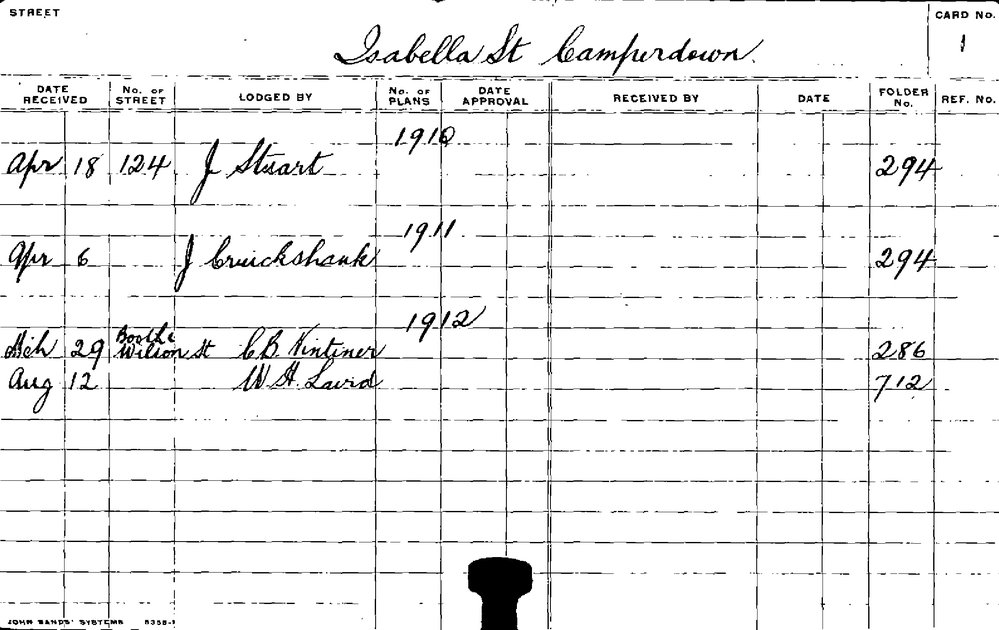 STREET
CARD No.
1
Isabella St Camperdown.
DATE RECEIVED No. OF STREET LODGED BY No. OF PLANS DATE APPROVAL RECEIVED BY DATE FOLDER No. REF. No.
1910
Apr 18 124 J Stuart 294
1911
Apr 6 J Cruickshank 294
1912
Booth &
Mch 29 Wilson St C B. Vintiner 286
Aug 12 W H. Laird 712
JOHN SANDS' SYSTEMS